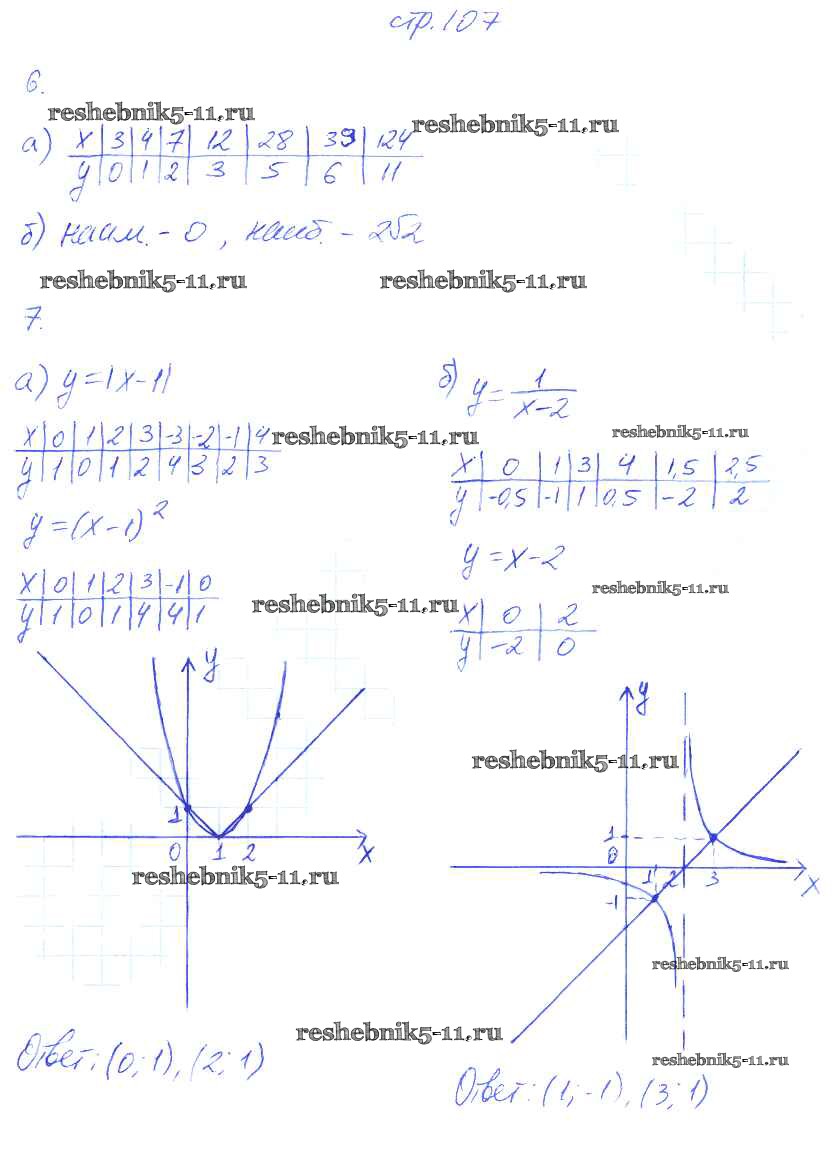 стр. 107
6.
reshebnik5-11.ru
reshebnik5-11.ru
а) x | 3 | 4 | 7 | 12 | 28 | 39 | 124
y | 0 | 1 | 2 | 3 | 5 | 6 | 11
б) наим. - 0, наиб. - 2√2
reshebnik5-11.ru
reshebnik5-11.ru
7.
а) y = |x-1|
x | 0 | 1 | 2 | 3 | -3 | -2 | -1 | 4
reshebnik5-11.ru
y | 1 | 0 | 1 | 2 | 4 | 3 | 2 | 3
y = (x-1)²
x | 0 | 1 | 2 | 3 | -1 | 0
reshebnik5-11.ru
y | 1 | 0 | 1 | 4 | 4 | 1
y
1
0 1 2 x
reshebnik5-11.ru
reshebnik5-11.ru
Ответ: (0; 1), (2; 1)
б) y = 1/(x-2)
reshebnik5-11.ru
x | 0 | 1 | 3 | 4 | 1,5 | 2,5
y | -0,5 | -1 | 1 | 0,5 | -2 | 2
y = x-2
reshebnik5-11.ru
x | 0 | 2
y | -2 | 0
y
reshebnik5-11.ru
1
0
1 2 3 x
-1
reshebnik5-11.ru
reshebnik5-11.ru
Ответ: (1; -1), (3; 1)